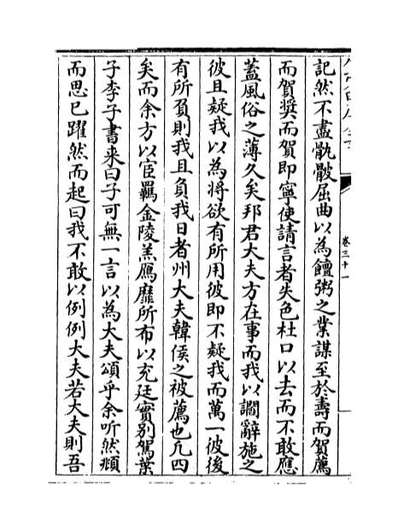 記然不盡骫骳屈曲以為饘粥之業謀至於壽而賀薦
而賀奨而賀即寧使請言者失色杜口以去而不敢應
蓋風俗之薄久矣邦君大夫方在事而我以讇辭施之
彼且疑我以為將欲有所用彼即不疑我而萬一彼後
有所負則我且負我日者州大夫韓侯之被薦也凢四
矣而余方以宦羈金陵羔鴈靡所布以充廷實別駕葉
子李子書来曰子可無一言以為大夫頌乎余听然頫
而思已躍然而起曰我不敢以例例大夫若大夫則吾
卷三十一